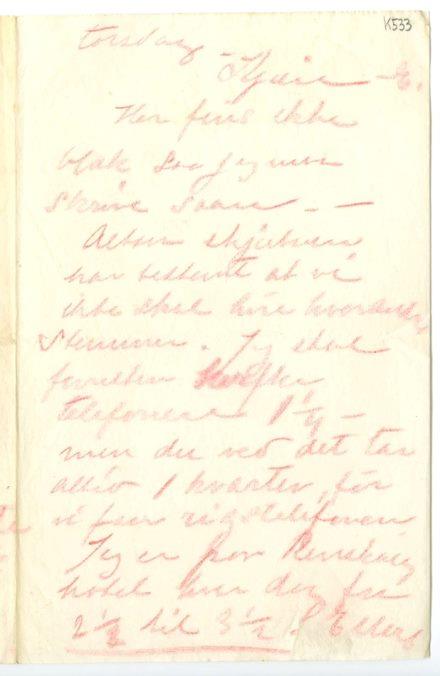 K533
torsdag –
Kjære – E.
Her fins ikke
blæk saa jeg maa
skrive saan – –
Altsaa skjæbnen
har bestemt at vi
ikke skal høre hverandres
stemmer. Jeg skal
telefonere 1 1/4 –
men du ved det tar
altid 1 kvarter, før
vi faar rigstelefonen
Jeg er paa
hotel hver dag fra
2 1/2 til 3 1/2. Ellers